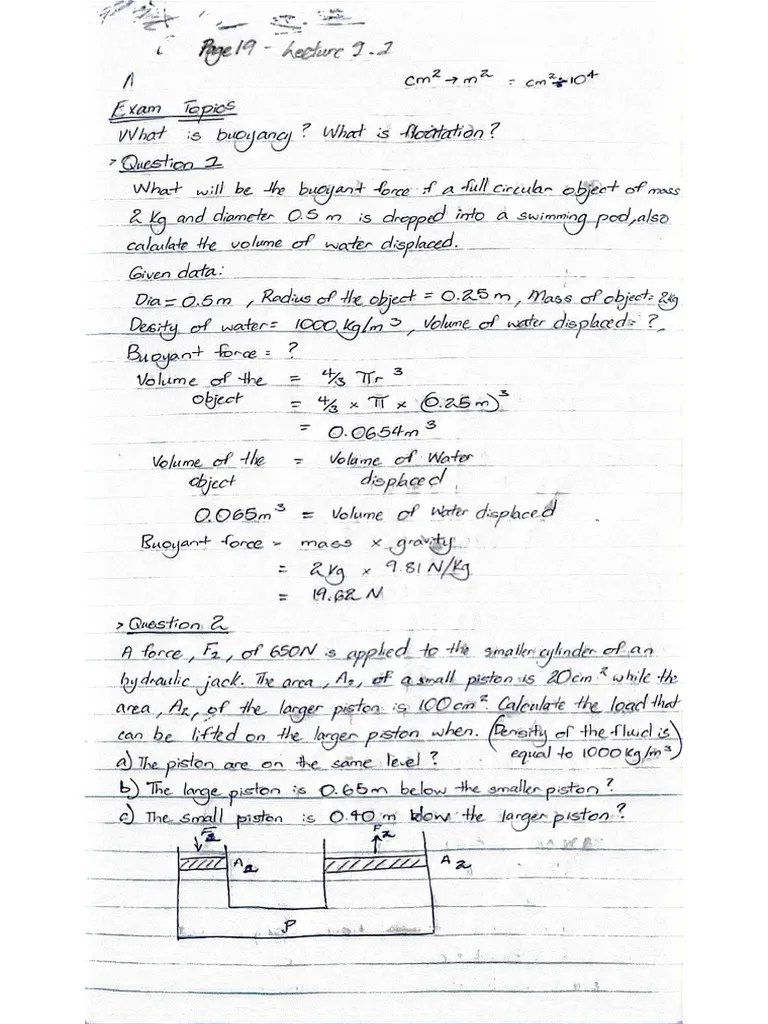 Page 19 - Lecture 9.2
cm² → m² = cm² ÷ 10⁴
Exam Topics
What is buoyancy? What is floatation?
> Question 1
What will be the buoyant force if a full circular object of mass
2 Kg and diameter 0.5 m is dropped into a swimming pool, also
calculate the volume of water displaced.
Given data:
Dia = 0.5m, Radius of the object = 0.25m, Mass of object = 2kg
Desity of water = 1000 kg/m³, Volume of water displaced = ?,
Buoyant force = ?
Volume of the = 4/3 πr³
object = 4/3 × π × (0.25m)³
= 0.0654m³
Volume of the = Volume of Water
object displaced
0.065m³ = Volume of Water displaced
Buoyant force = mass × gravity
= 2kg × 9.81 N/kg
= 19.62 N
> Question 2
A force, F₂, of 650N is applied to the smaller cylinder of an
hydraulic jack. The area, A₂, of a small piston is 20cm² while the
area, A₂, of the larger piston is 100cm². Calculate the load that
can be lifted on the larger piston when. (Density of the fluid is
equal to 1000 kg/m³)
a) The piston are on the same level?
b) The large piston is 0.65m below the smaller piston?
c) The small piston is 0.40 m below the larger piston?
F₂ F₂
A₂ A₂
P